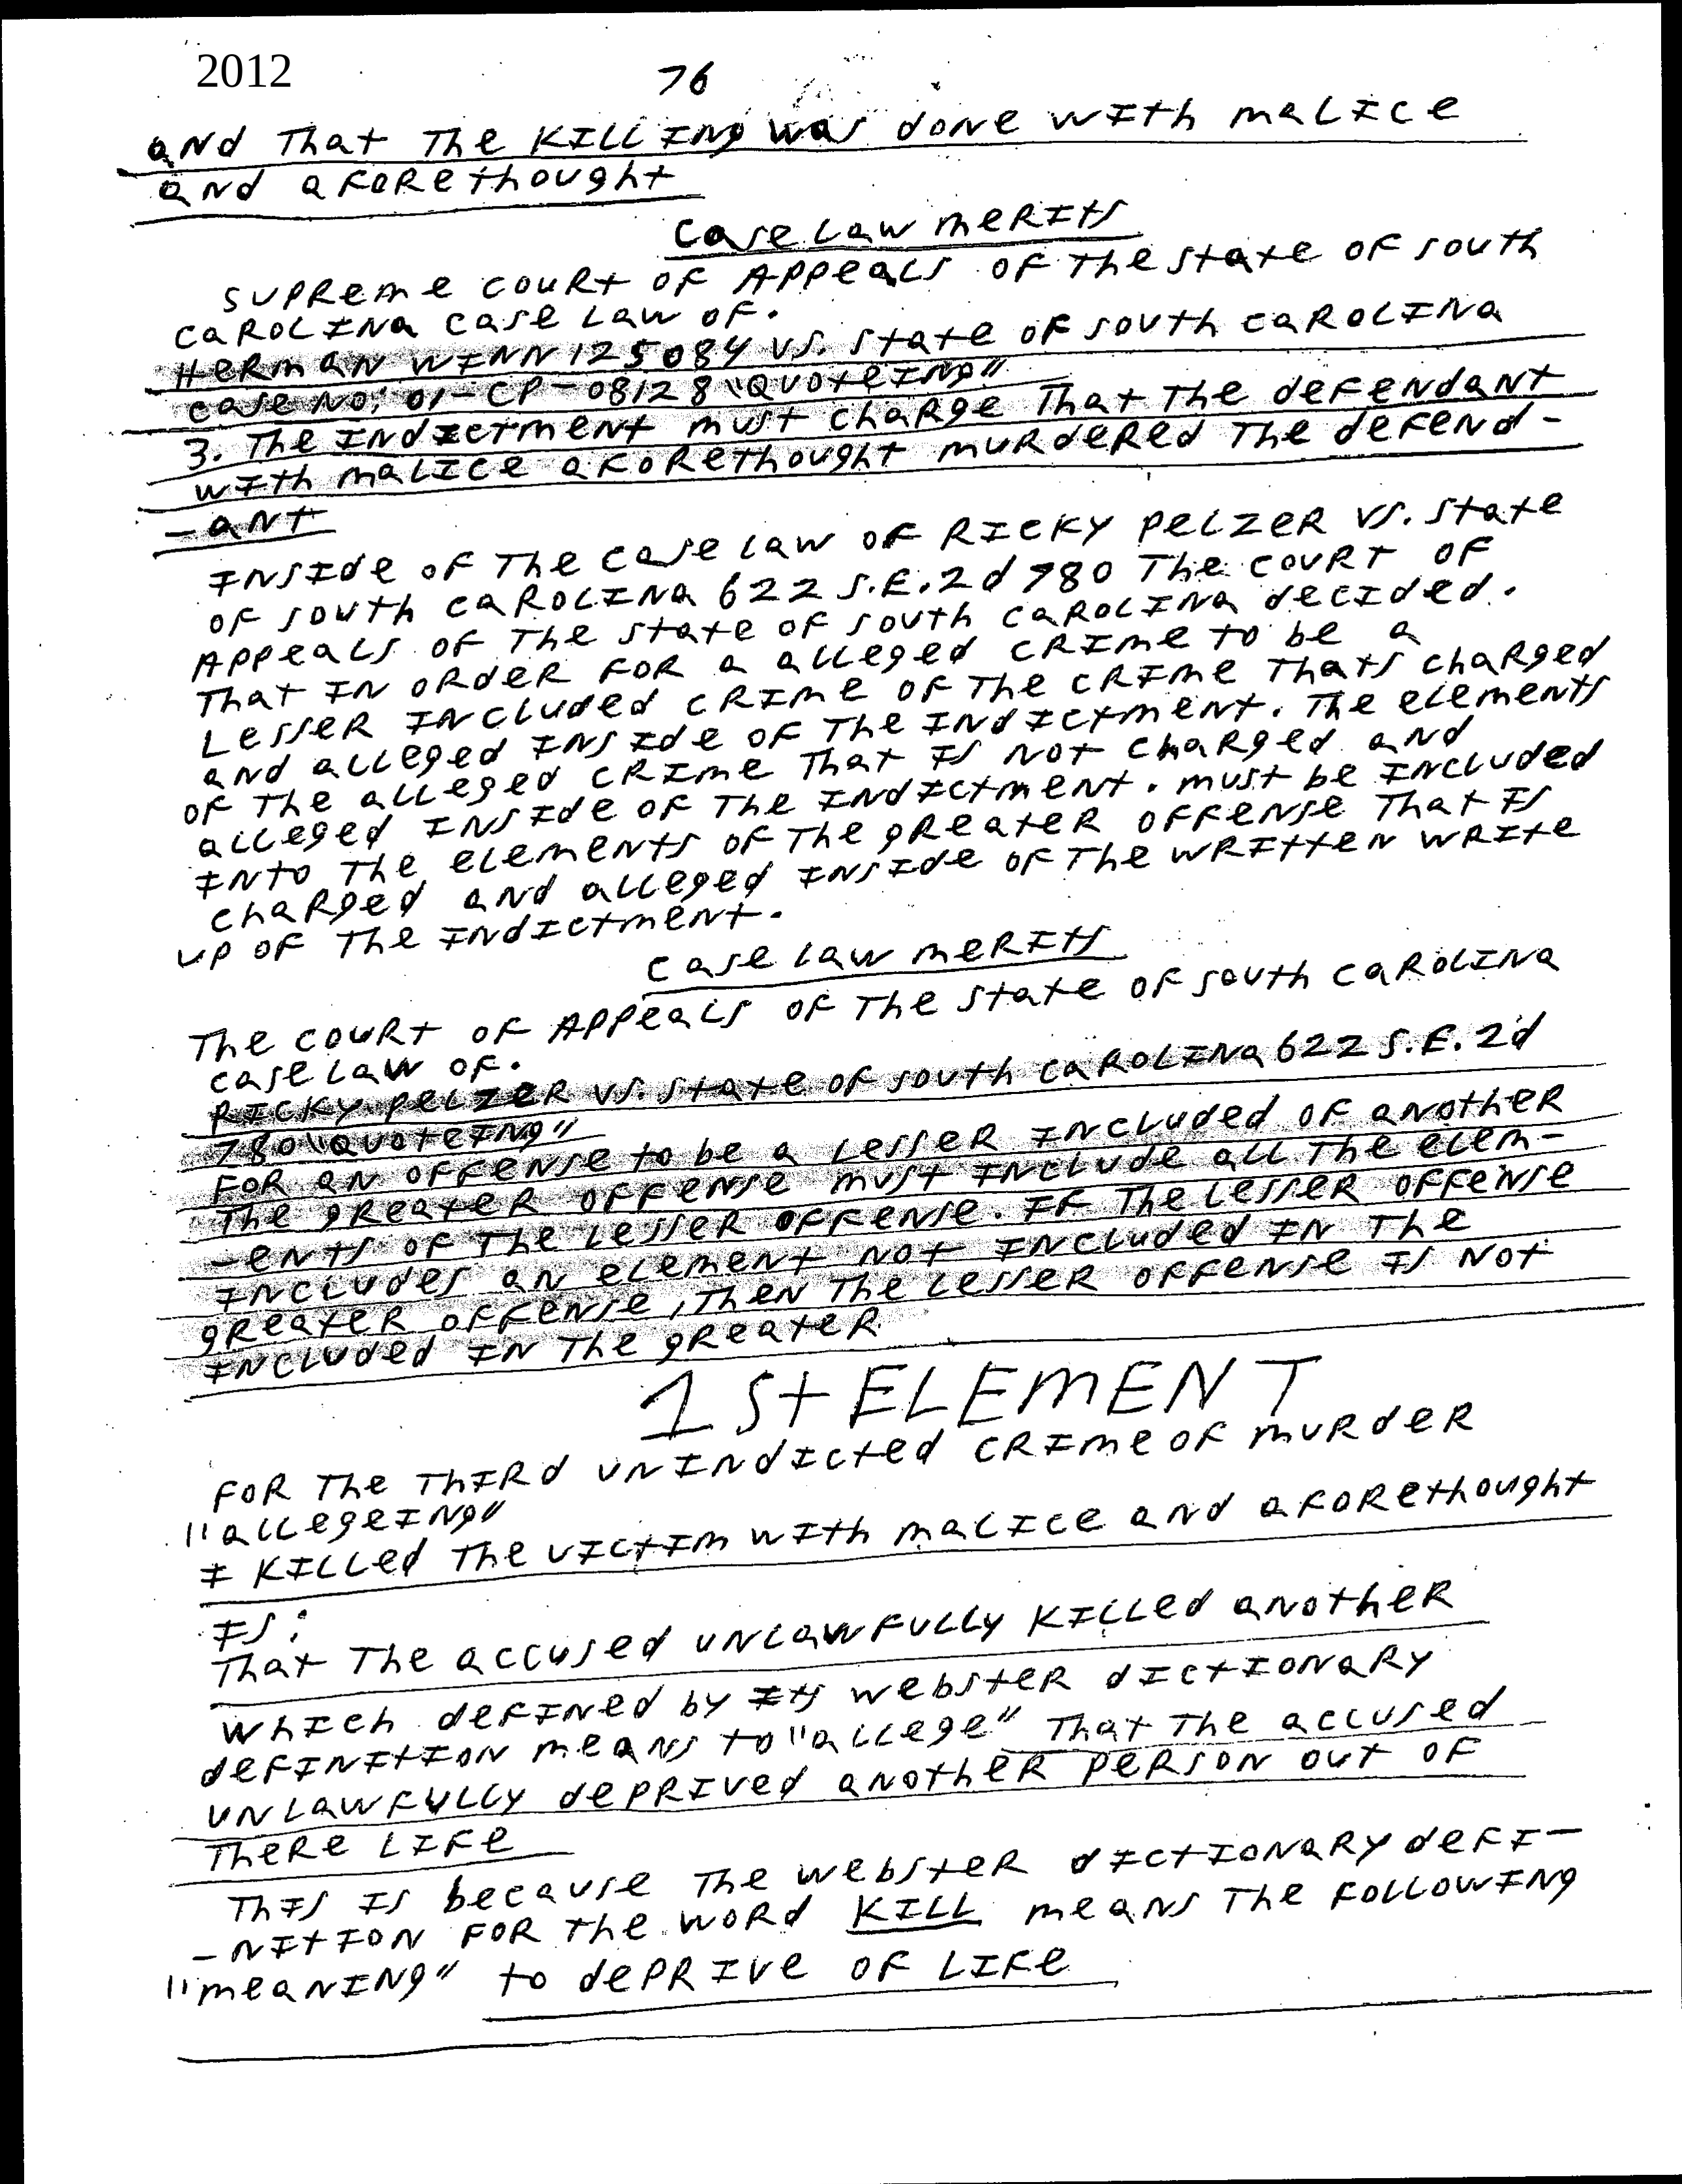 2012
76
and That The KILLING was done with malice
and aforethought
Case Law merits
Supreme court of Appeals of the state of south
Carolina case law of.
Herman Winn 125084 vs. state of south carolina
case No: 01-CP-08128 "Quoteing"
3. The Indictment must charge That The defendant
with malice aforethought murdered The defend-
-ant
Inside of The case law of Ricky Pelzer vs. State
of south carolina 622 S.E.2d 780 The court of
Appeals of the state of south carolina decided.
That in order for a alleged crime to be a
Lesser included crime of the crime Thats charged
and alleged inside of the indictment. The elements
of the alleged crime That is not charged and
alleged inside of the indictment. must be included
into the elements of the greater offense That is
charged and alleged inside of the written write
up of the indictment.
case law merits
The court of Appeals of the state of south carolina
case law of.
Ricky Pelzer vs. state of south carolina 622 S.E.2d
780 "Quoteing"
For an offense to be a lesser included of another
The greater offense must include all the elem-
-ents of the lesser offense. If the lesser offense
includes an element not included in the
greater offense, then the lesser offense is not
included in the greater
1st ELEMENT
For the Third unindicted crime of murder
"allegeing"
I killed the victim with malice and aforethought
Is:
That the accused unlawfully killed another
which defined by its webster dictionary
definition means to "allege" That the accused
unlawfully deprived another person out of
There life
This is because the webster dictionary defi-
-nition for the word KILL means the following
"meaning" to deprive of life